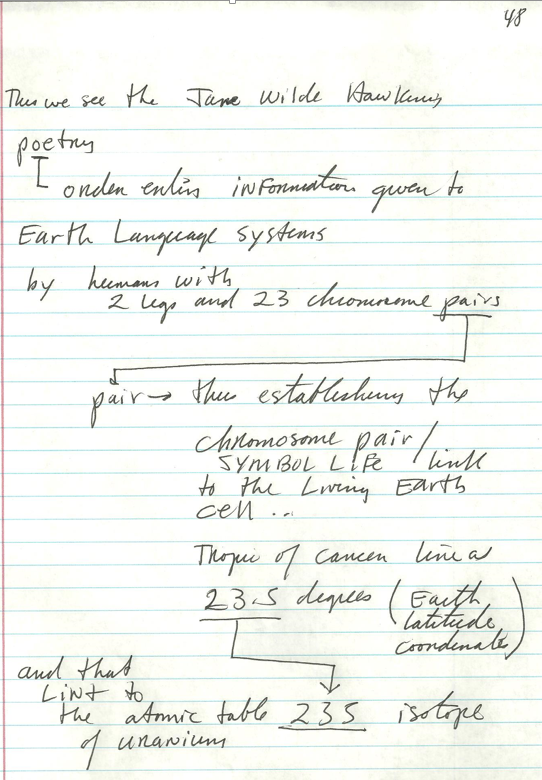 48
Thus we see the Jane Wilde Hawking
poetry
order entirs information given to
Earth Language systems
by humans with
2 legs and 23 chromosome pairs
pair → thus establishing the
chromosome pair /
SYMBOL LIFE / link
to the Living Earth
cell ..
Tropic of cancer line a
23.5 degrees ( Earth
latitude
coordinate )
and that
LINT to
the atomic table 235 isotope
of uranium